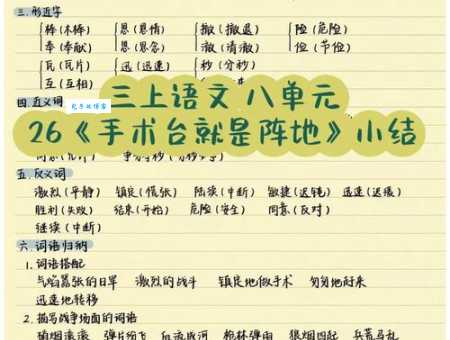 三.形近字
棒(木棒) 恳(恳情) 撤(撤退) 险(危险)
奉(奉献) 恳(恳念) 澈(清澈) 俭(节俭)
瓦(瓦片) 迅(迅速) 秒(分秒)
互(互相)
四.近义词
三上语文 八单元
26《手术台就是阵地》小结
五.反义词
激烈(平静) 镇定(慌张) 陆续(中断) 敏捷(迟钝) 迅速(迟缓)
胜利(失败) 结束(开始) 危险(安全) 同意(反对)
继续(中断)
六.词语归纳
1.词语搭配
气焰嚣张的日军 激烈的战斗 镇定地做手术 匆匆地赶来
迅速地转移
2.描写战争场面的词语
硝烟滚滚 弹片纷飞 血流成河 枪林弹雨 狼烟四起 兵荒马乱